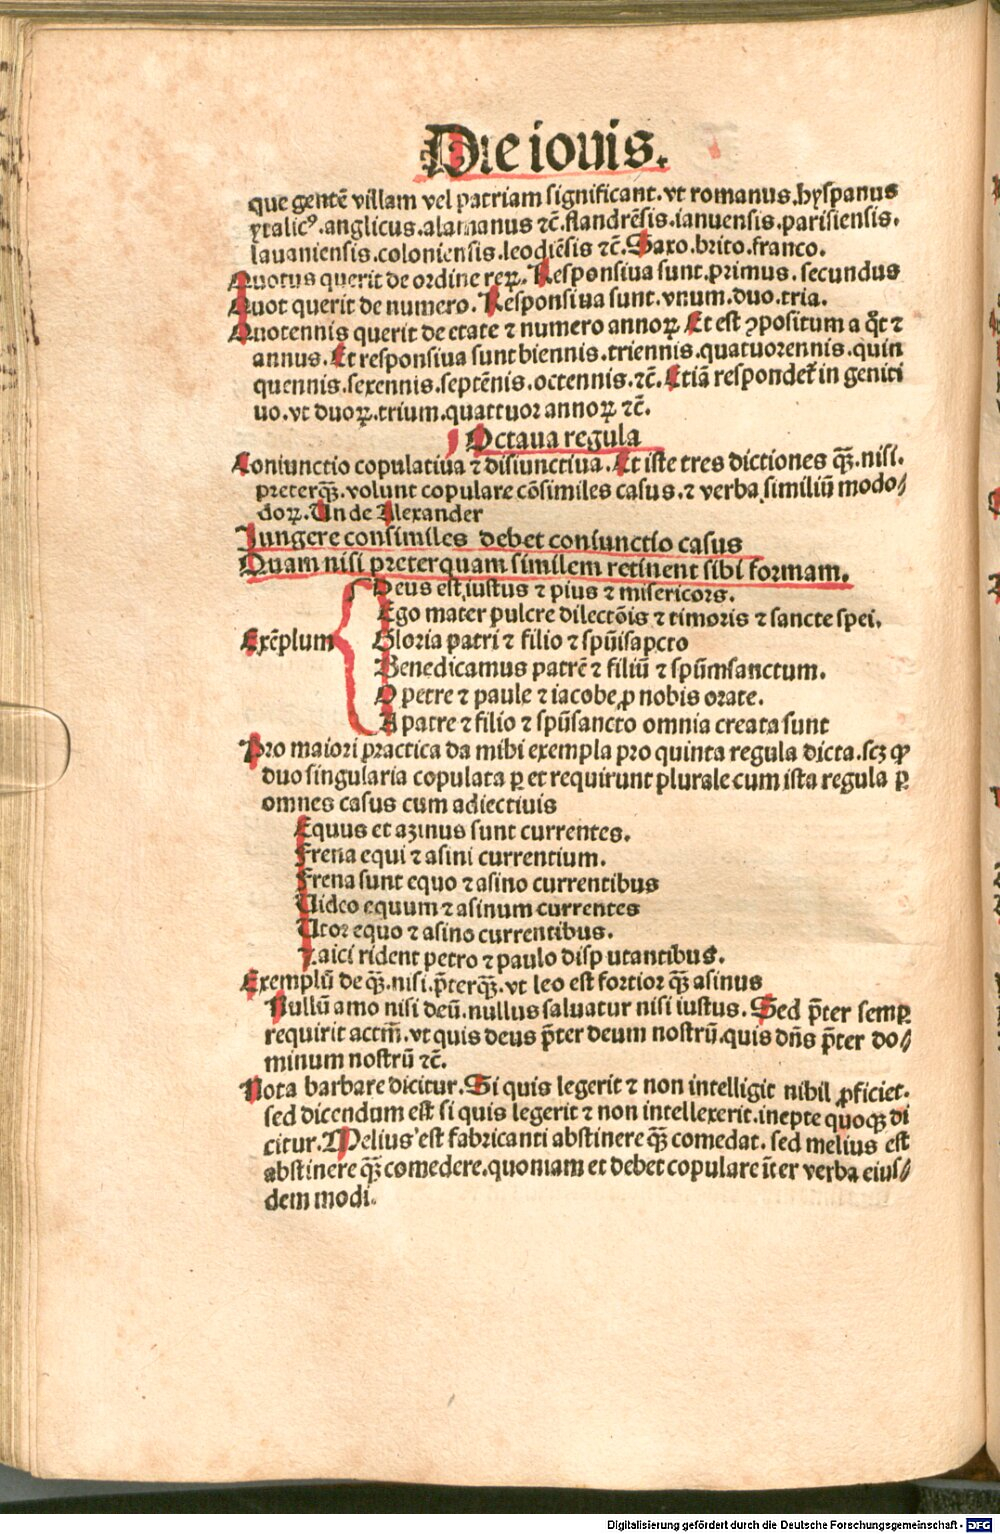 Die iouis.
que gentē villam vel patriam significant. vt romanus. hyspanus
ytalicꝰ. anglicus. alamanus ⁊c̄. flandrēsis. ianuensis. parisiensis.
lauaniensis. coloniensis. leodiēsis ⁊c̄. Saxo. brito. franco.
Quotus querit de ordine reꝝ. Responsiua sunt. primus. secundus
Quot querit de numero. Responsiua sunt. vnum. duo. tria.
Quotennis querit de etate ⁊ numero annoꝝ. Et est ꝯpositum a qͦt ⁊
annus. Et responsiua sunt biennis. triennis. quatuorennis. quin
quennis. sexennis. septēnis. octennis. ⁊c̄. Etiā respondet᷑ in geniti
uo. vt duoꝝ. trium. quattuor annoꝝ ⁊c̄.
Octaua regula
Coniunctio copulatiua ⁊ disiunctiua. Et iste tres dictiones qꝫ̄. nisi.
preterqꝫ̄. volunt copulare cōsimiles casus. ⁊ verba similiū modo/
doꝝ. Unde Alexander
Iungere consimiles debet coniunctio casus
Quam nisi preterquam similem retinent sibi formam.
Deus est iustus ⁊ pius ⁊ misericors.
Ego mater pulcre dilectōis ⁊ timoris ⁊ sancte spei.
Exēplum Gloria patri ⁊ filio ⁊ spūisaꝑcto
Benedicamus patrē ⁊ filiū ⁊ spūmsanctum.
O petre ⁊ paule ⁊ iacobe ꝓ nobis orate.
A patre ⁊ filio ⁊ spūsancto omnia creata sunt
Pro maiori practica da mihi exempla pro quinta regula dicta. scꝫ ꝙ
duo singularia copulata ꝑ et requirunt plurale cum ista regula ꝑ
omnes casus cum adiectiuis
Equus et azinus sunt currentes.
Frena equi ⁊ asini currentium.
Frena sunt equo ⁊ asino currentibus
Uideo equum ⁊ asinum currentes
Utor equo ⁊ asino currentibus.
Laici rident petro ⁊ paulo disputantibus.
Exemplū de qꝫ̄. nisi. p̄terqꝫ̄. vt leo est fortior qꝫ̄ asinus
Nullū amo nisi deū. nullus saluatur nisi iustus. Sed p̄ter semꝑ
requirit actm̄. vt quis deus p̄ter deum nostrū. quis dn̄s p̄ter do/
minum nostrū ⁊c̄.
Nota barbare dicitur. Si quis legerit ⁊ non intelligit nihil ꝓficiet.
sed dicendum est si quis legerit ⁊ non intellexerit. inepte quoqꝫ di
citur. Melius est fabricanti abstinere qꝫ̄ comedat. sed melius est
abstinere qꝫ̄ comedere. quoniam et debet copulare īter verba eius/
dem modi.
Digitalisierung gefördert durch die Deutsche Forschungsgemeinschaft - DFG